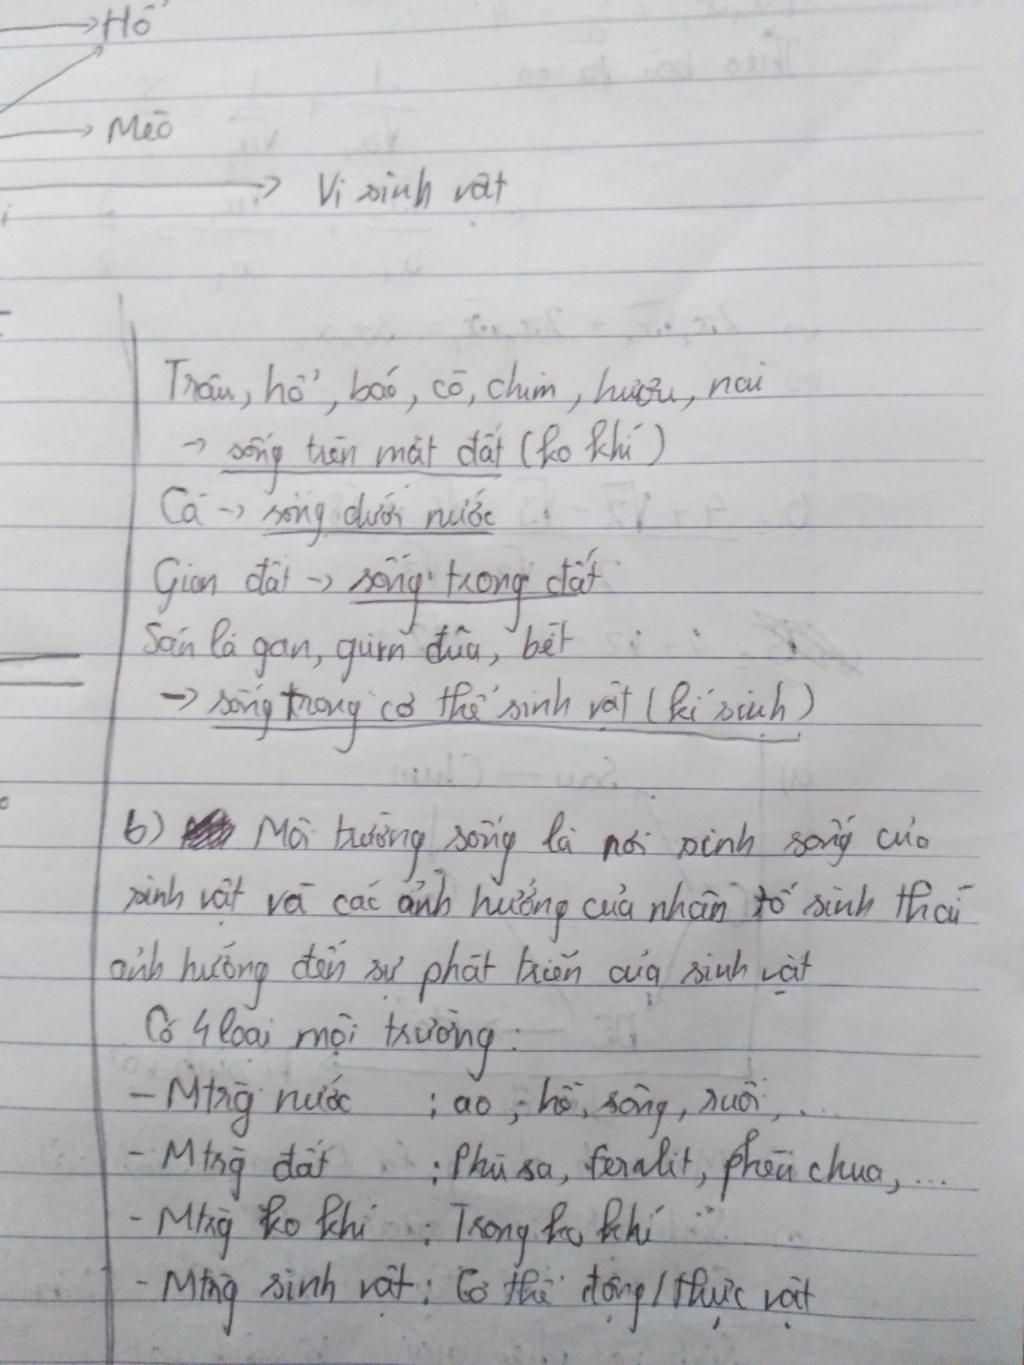 Hổ
Mèo
Vi sinh vật
Trâu, hổ, báo, cò, chim, hươu, nai
→ sống trên mặt đất (ko khí)
Cá → sống dưới nước
Giun đất → sống trong đất
Sán lá gan, giun đũa, bét
→ sống trong cơ thể sinh vật (kí sinh)
b) Môi trường sống là nơi sinh sống của
sinh vật và các ảnh hưởng của nhân tố sinh thái
ảnh hưởng đến sự phát triển của sinh vật
Có 4 loại môi trường:
- Mtrg nước : ao, hồ, sông, suối, ...
- Mtrg đất : Phù sa, feralit, phèn chua, ...
- Mtrg ko khí : Trong ko khí
- Mtrg sinh vật : Cơ thể động/thực vật